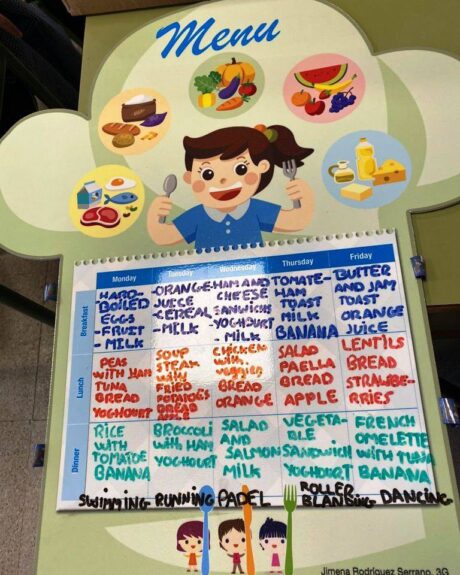 Menu
Monday Tuesday Wednesday Thursday Friday
Breakfast
- HARD-
BOILED
EGGS
- FRUIT
- MILK
-ORANGE
JUICE
-CEREAL
-MILK
-HAM AND
CHEESE
SANDWICHS
- YOGHOURT
- MILK
TOMATE-
HAM
TOAST
MILK
BANANA
BUTTER
AND JAM
TOAST
ORANGE
JUICE
Lunch
PEAS
WITH HAM
TUNA
BREAD
YOGHOURT
SOUP
STEAK
WITH
FRIED
POTATOES
BREAD
APPLE
CHICKEN
WITH
VEGGIES
BREAD
ORANGE
SALAD
PAELLA
BREAD
APPLE
LENTILS
BREAD
STRAWBE-
RRIES
Dinner
RICE
WITH
TOMATOE
BANANA
BROCCOLI
WITH HAM
YOGHOURT
SALAD
AND
SALMON
MILK
VEGETA-
BLE
SANDWICH
YOGHOURT
FRENCH
OMELETTE
WITH TUNA
BANANA
SWIMMING RUNNING PADEL ROLLER
BLANDING DANCING
Jimena Rodriguez Serrano. 3G